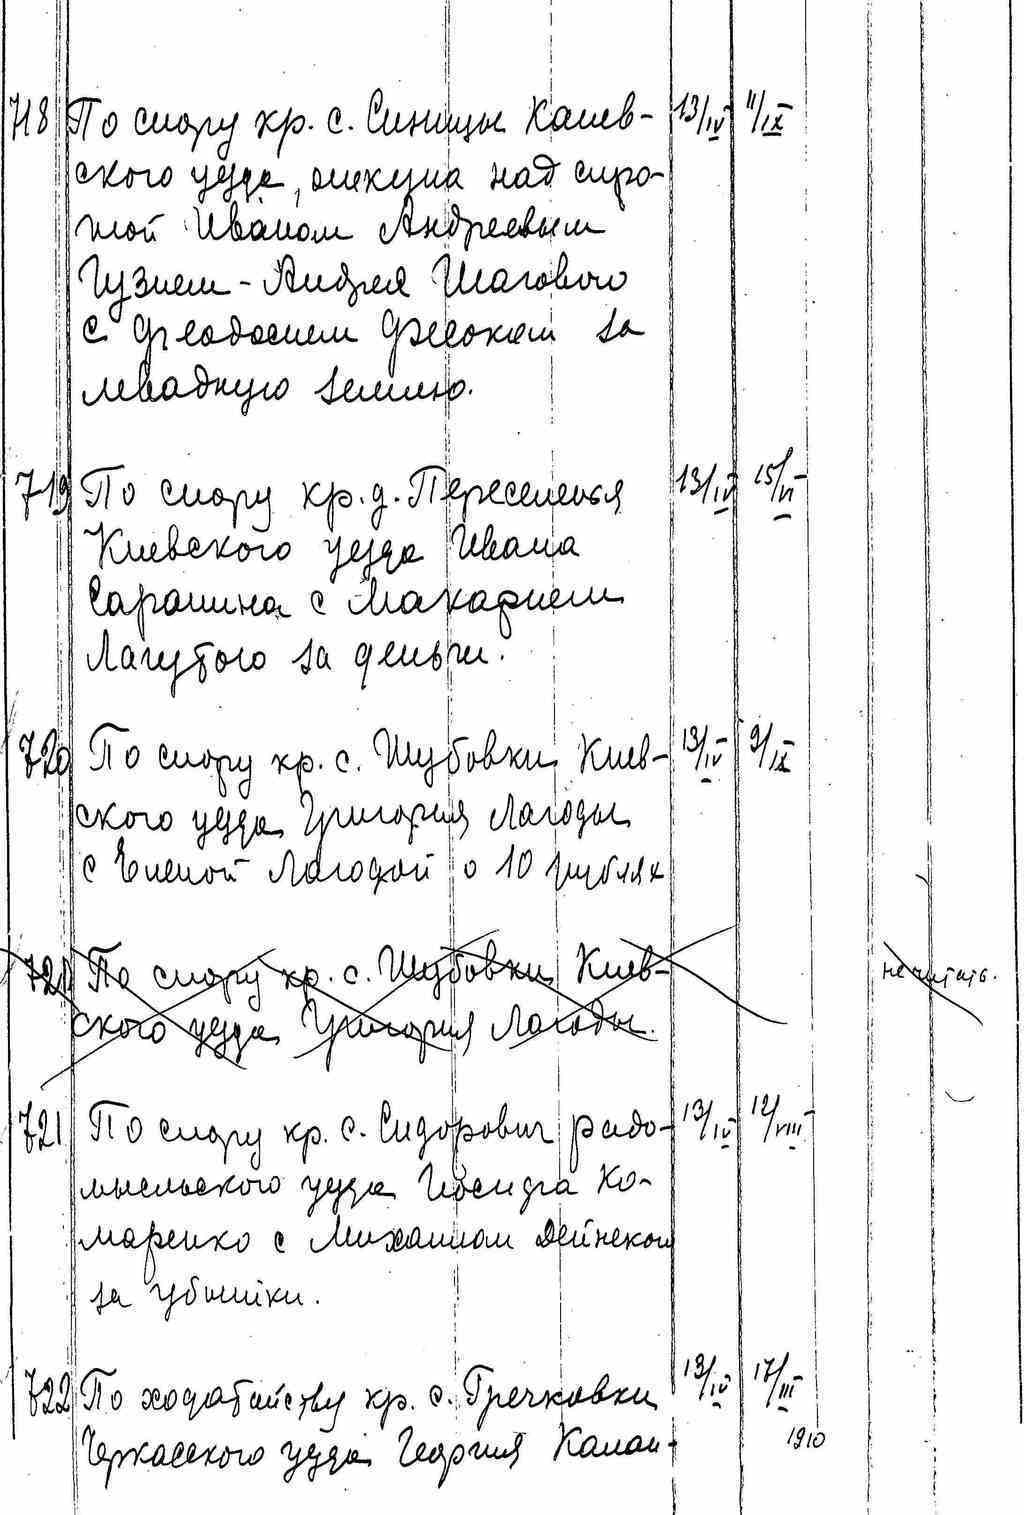 718 По спору кр. с. Синицы Канев- 13/IV 11/IX
ского уезда, опекуна над сиро-
той Иваном Андреевым
Гузием - Андрея Шагового
с Феодосием Фесоком за
левадную землю.
719 По спору кр. д. Переселенья 13/IV 15/VI
Киевского уезда Ивана
Сарапина с Макарием
Лагутого за деньги.
720 По спору кр. с. Шубовки Киев- 13/IV 9/IX
ского уезда Григория Лагоды
с Еленой Лагодой о 10 рублях
721 По спору кр. с. Шубовки Киев- не читать.
ского уезда Григория Лагоды.
721 По спору кр. с. Сидорович радо- 13/IV 12/VIII
мысльского уезда Иосифа Ко-
маренко с Михаилом Дейнекой
за убытки.
722 По ходатайству кр. с. Гречковки 13/IV 17/III
1910
Черкасского уезда Георгия Калаш-